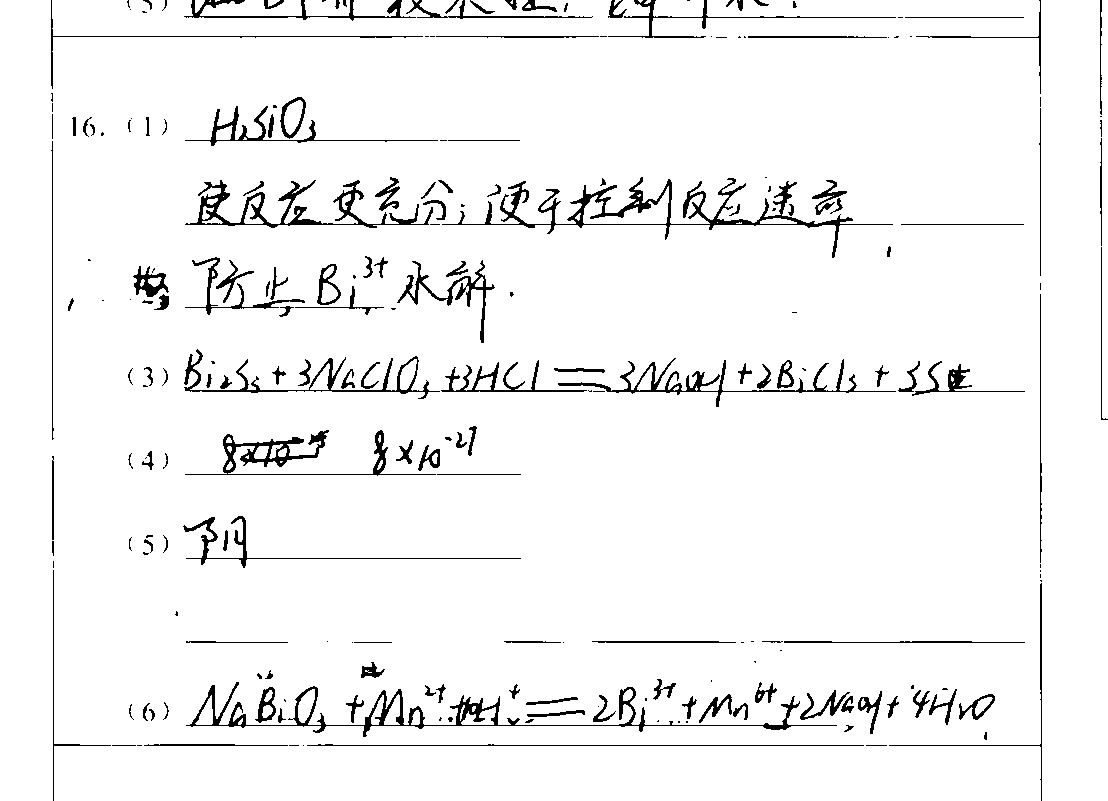 16.（1） H₂SiO₃
使反应更充分；便于控制反应速率
防止 Bi³⁺ 水解.
（3）Bi₂S₃+3NaClO₃+3HCl══3NaOH+2BiCl₃+3S
（4） 8×10⁻²⁷
（5）阴
（6）NaBiO₃+Mn²⁺ ══2Bi³⁺+Mn⁶⁺+2NaOH+4H₂O